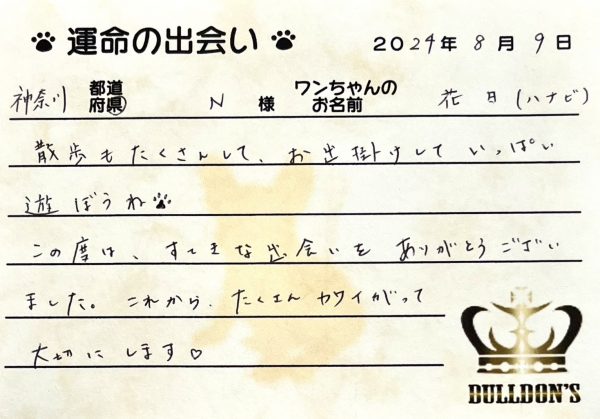 運命の出会い 2024年8月9日
神奈川 都道府県 N 様 ワンちゃんのお名前 花日(ハナビ)
散歩もたくさんして、お出掛けしていっぱい
遊ぼうね
この度は、すてきな出会いをありがとうござい
ました。これから、たくさんカワイがって
大切にします♡
BULLDON'S